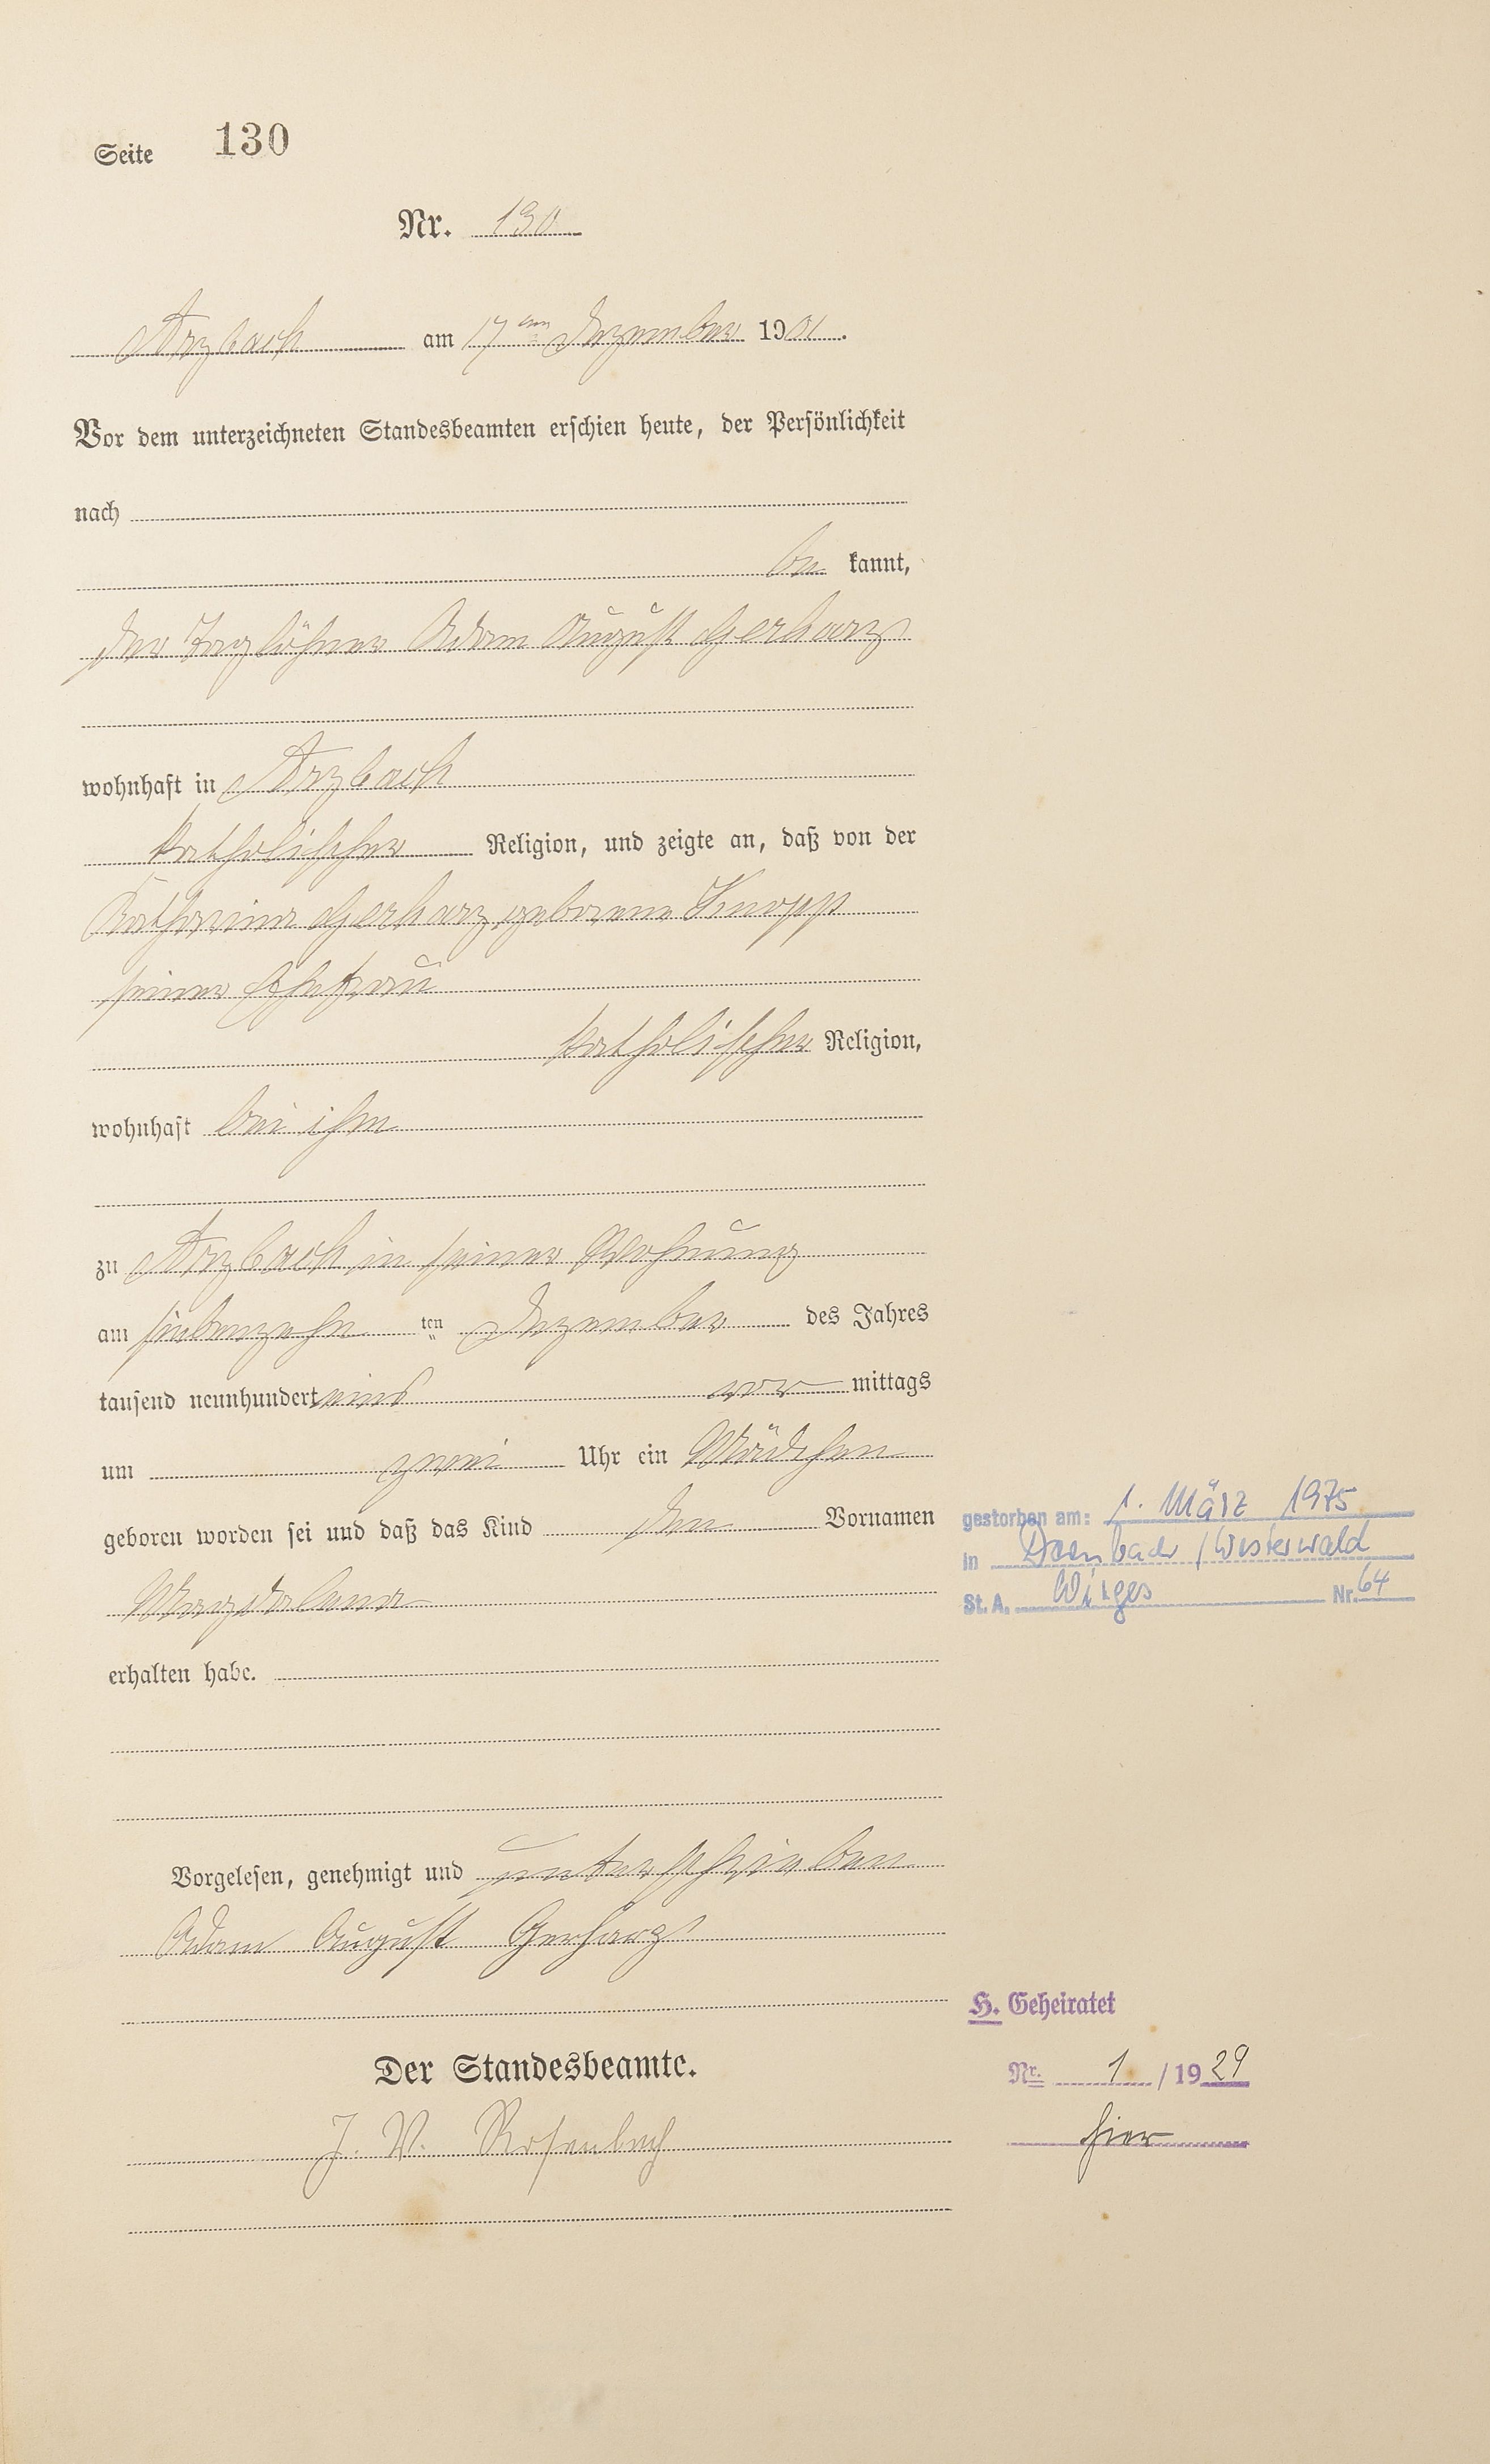 Seite 130
Nr. 130
Arzbach am 17ten Dezember 1901.
Vor dem unterzeichneten Standesbeamten erschien heute, der Persönlichkeit
nach
be kannt,
der Taglöhner Adam August Gerharz
wohnhaft in Arzbach
katholischer Religion, und zeigte an, daß von der
Katharina Gerharz, geborene Knopp
seiner Ehefrau
katholischer Religion,
wohnhaft bei ihm
zu Arzbach in seiner Wohnung
am siebenzehn ten Dezember des Jahres
tausend neunhundert eins vor mittags
um zwei Uhr ein Mädchen
geboren worden sei und daß das Kind den Vornamen
Magdalena
erhalten habe.
Vorgelesen, genehmigt und unterschrieben
Adam August Gerharz
Der Standesbeamte.
J. W. Rosenbach
gestorben am: 1. März 1975
in /Westerwald
St. A. Wirges Nr. 64
H. Geheiratet
Nr. 1 / 1929
hier